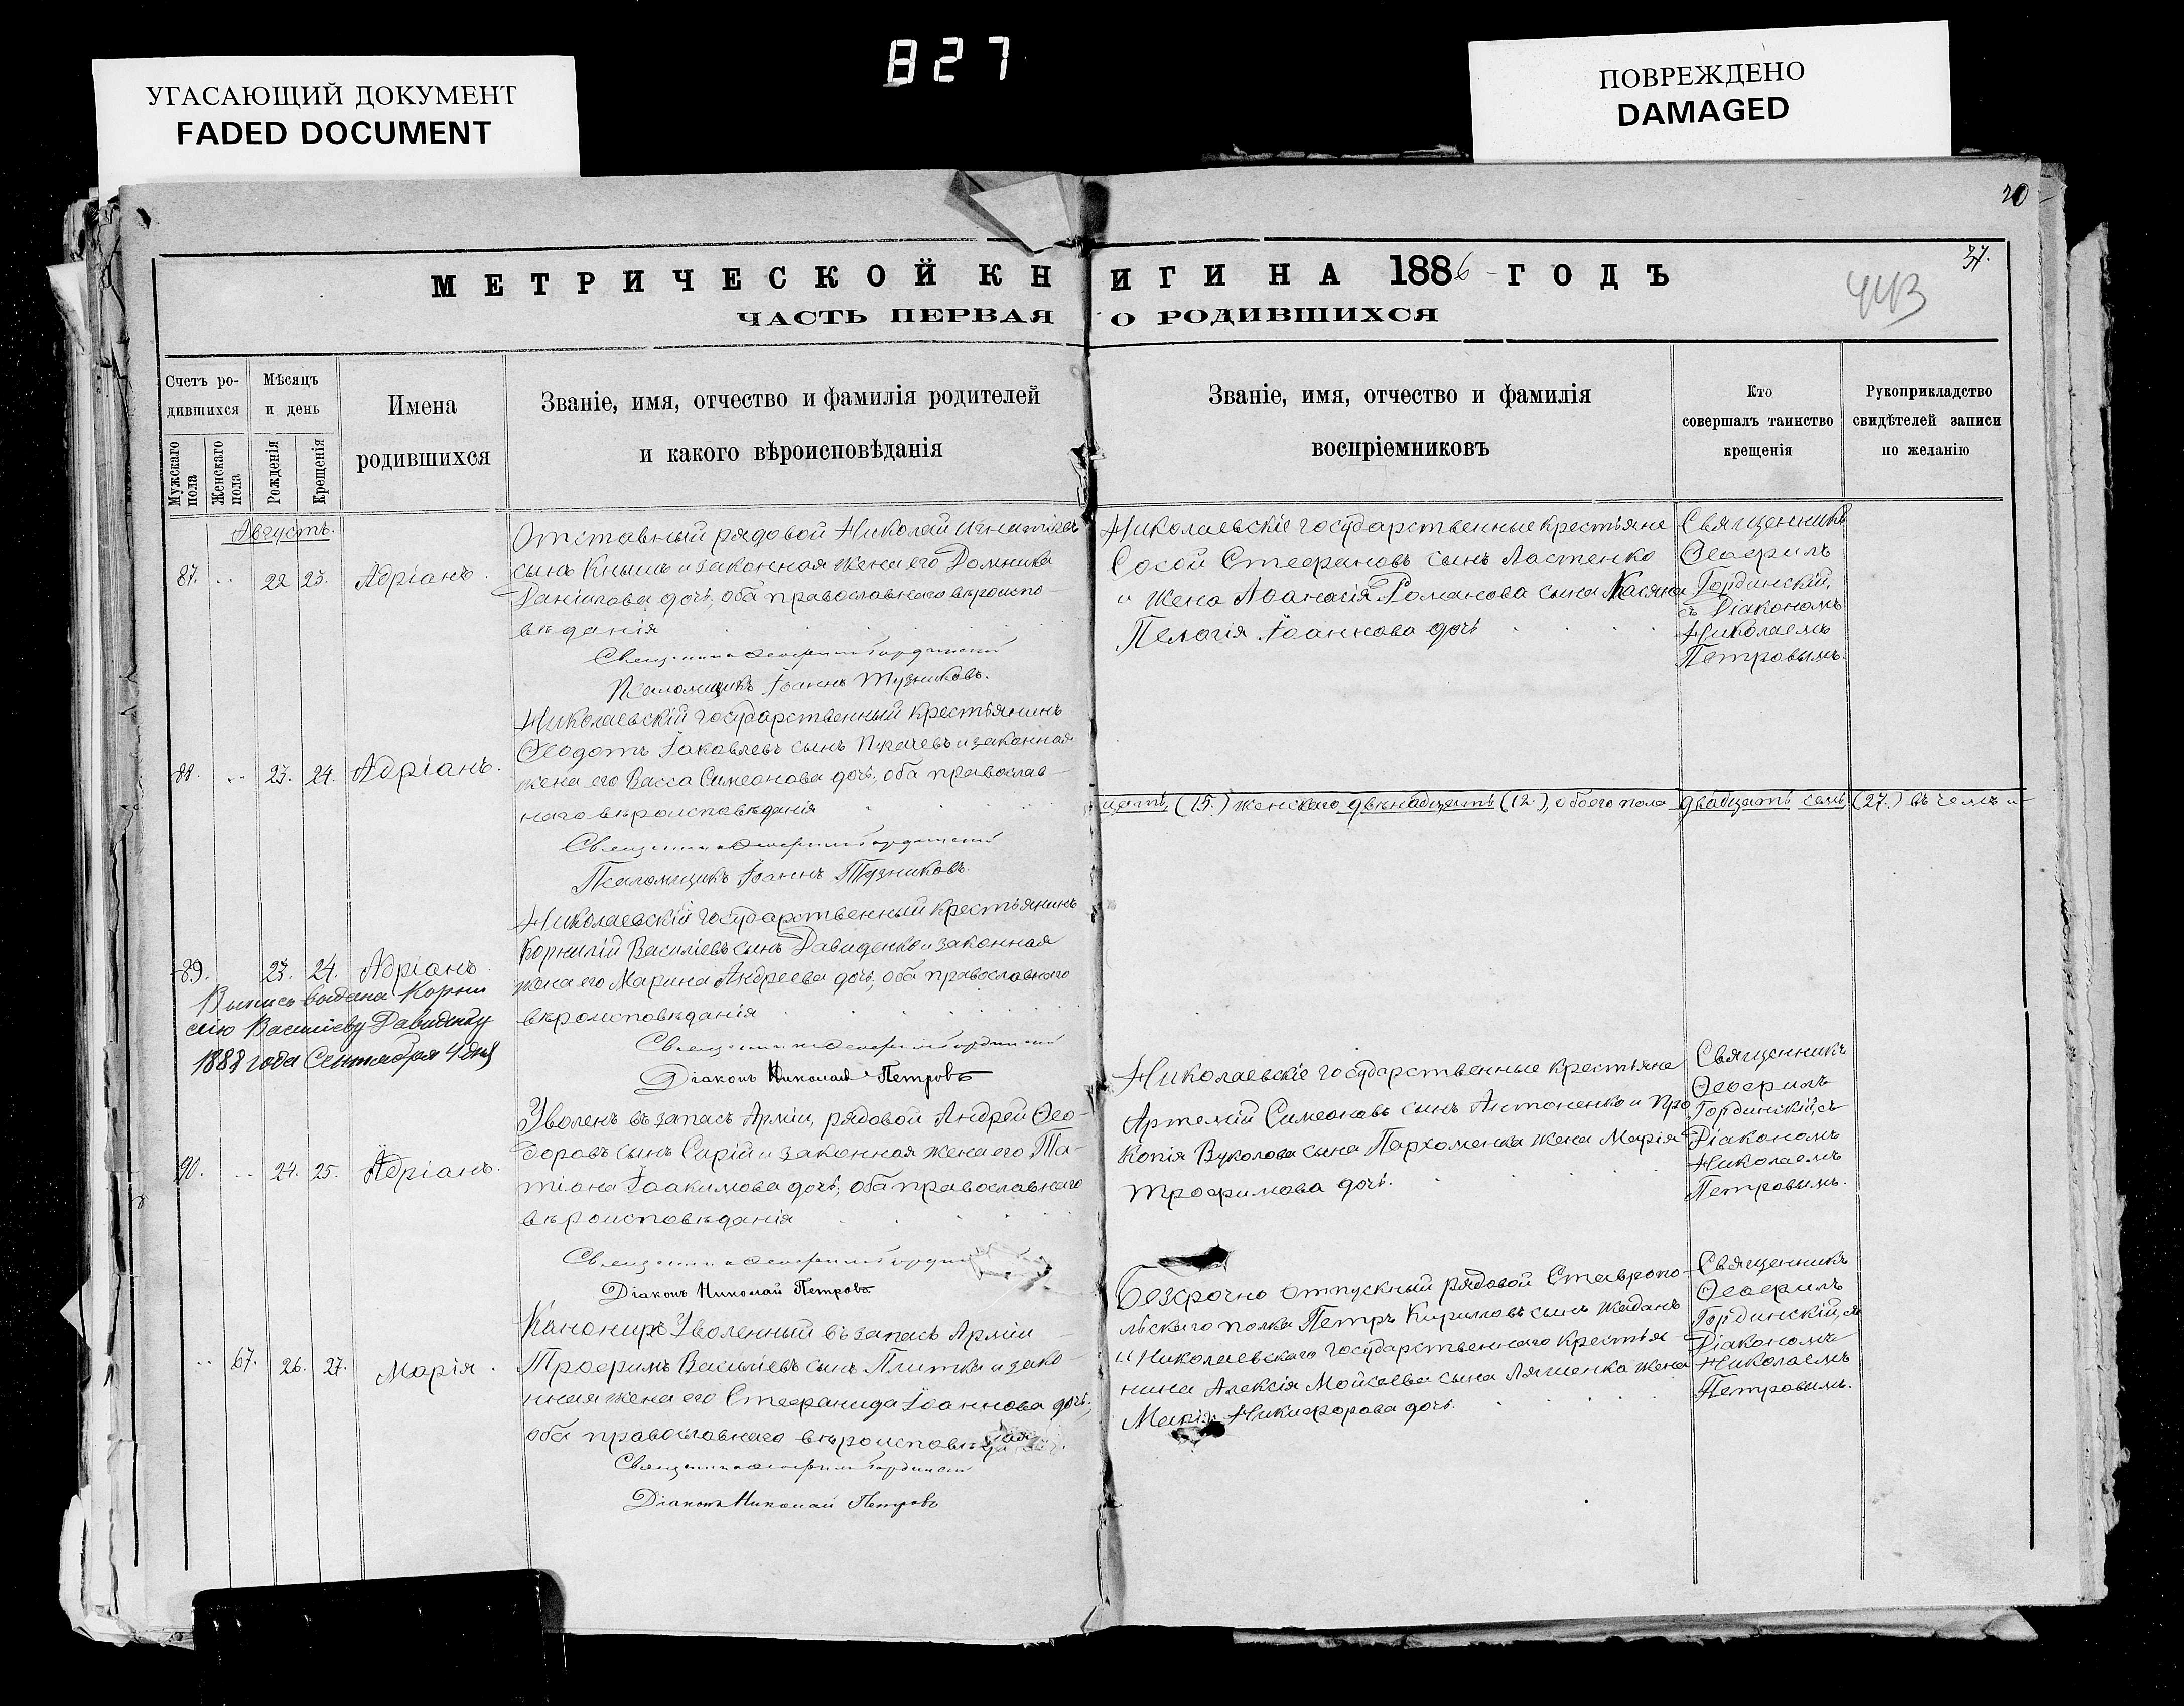 УГАСАЮЩИЙ ДОКУМЕНТ
FADED DOCUMENT
827
ПОВРЕЖДЕНО
DAMAGED
20
37.
МЕТРИЧЕСКОЙ КНИГИ НА 1886 ГОДЪ
443
ЧАСТЬ ПЕРВАЯ О РОДИВШИХСЯ
Счетъ ро-
дившихся
Мужскаго пола
Женскаго пола
Мѣсяцъ
и день
Рожденія
Крещенія
Имена
родившихся
Званіе, имя, отчество и фамилія родителей
и какого вѣроисповѣданія
Званіе, имя, отчество и фамилія
воспріемниковъ
Кто
совершалъ таинство
крещенія
Рукоприкладство
свидѣтелей записи
по желанію
Августъ.
87. 22 23. Адріанъ.
Отставный рядовой Николай Игнатіевъ
сынъ Кнышъ и законная жена его Домника
Даніилова дочь, оба православнаго вѣроиспо-
вѣданія
Псаломщикъ Іоаннъ Тузниковъ.
Николаевскіе государственные крестьяне
Сосой Стефановъ сынъ Ластенко
и жена Аѳанасія Романова сына Касяна
Пелагія Іоаннова дочь
Священникъ
Ѳеофилъ
Гординскій,
съ Діакономъ
Николаемъ
Петровымъ.
88. 23. 24. Адріанъ.
Николаевскій государственный крестьянинъ
Ѳеодотъ Іаковлевъ сынъ Пугачевъ и законная
жена его Васса Симеонова дочь, оба православ-
наго вѣроисповѣданія
Псаломщикъ Іоаннъ Тузниковъ.
цать, (15.) женскаго двѣнадцать (12.), обоего пола двадцать семь (27.) въ чемъ и
89. 23. 24. Адріанъ
Выпись выдана Корни
лію Василіеву Давиденку
1888 года Сентября 4 дня
Николаевскій государственный крестьянинъ
Корнилій Василіевъ сынъ Давиденко и законная
жена его Марина Андреева дочь, оба православнаго
вѣроисповѣданія
Діаконъ Николай Петровъ
90. 24. 25. Адріанъ.
Уволенъ въ запасъ Арміи, рядовой Андрей Ѳео-
доровъ сынъ Сирій и законная жена его Та-
тіана Іоакимова дочь, оба православнаго
вѣроисповѣданія
Діаконъ Николай Петровъ
Николаевскіе государственные крестьяне
Артемій Симеоновъ сынъ Антоненко и Про
копія Вуколова сына Пархоменка жена Марія
Трофимова дочь.
Священникъ
Ѳеофилъ
Гординскій, съ
Діакономъ
Николаемъ
Петровымъ.
67. 26. 27. Марія.
Канониръ Уволенный въ запасъ Арміи
Трофимъ Василіевъ сынъ Плитка и зако-
нная жена его Стефанида Іоаннова дочь,
оба православнаго вѣроисповѣданія
Діаконъ Николай Петровъ
Безсрочно отпускный рядовой Ставропо-
льскаго полка Петръ Кирилловъ сынъ Жаданъ
и Николаевскаго государственнаго крестья-
нина Алексія Мойсеева сына Ляшенка жена
Марія Никифорова дочь.
Священникъ
Ѳеофилъ
Гординскій, съ
Діакономъ
Николаемъ
Петровымъ.